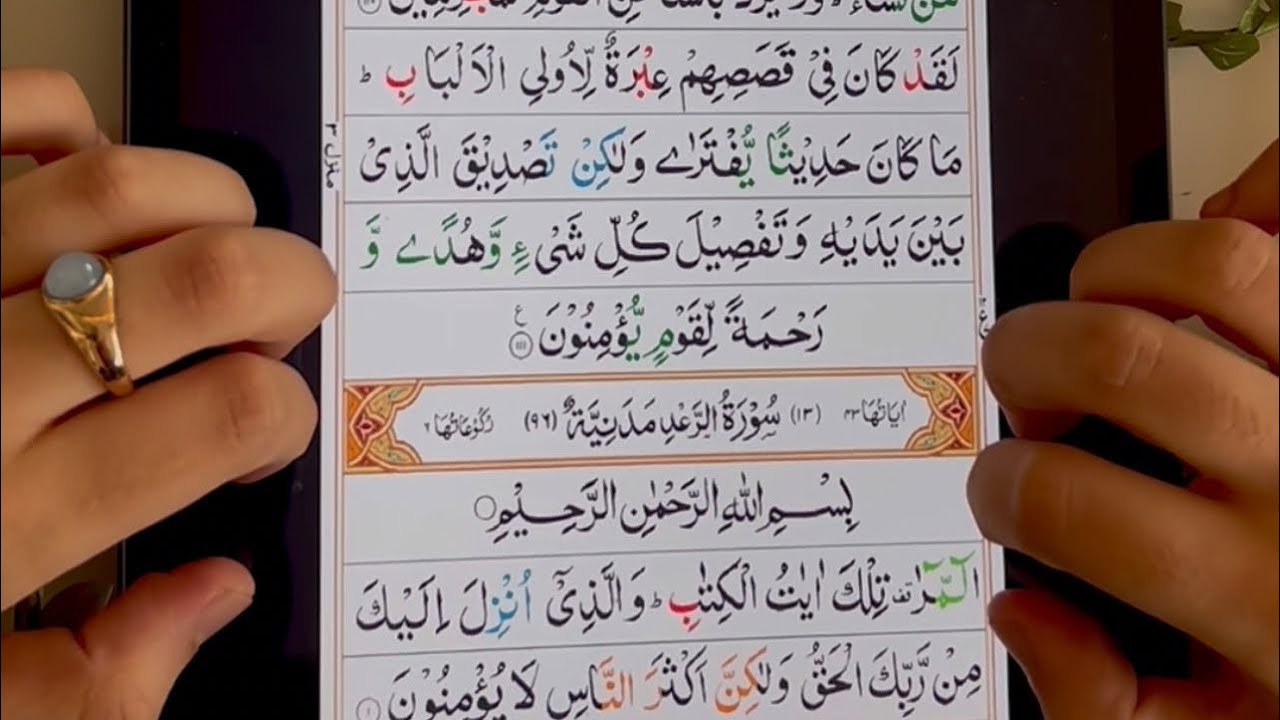 لَقَدْ كَانَ فِيْ قَصَصِهِمْ عِبْرَةٌ لِّاُولِي الْاَلْبَابِ ؕ
مَا كَانَ حَدِيْثًا يُّفْتَرٰى وَلٰكِنْ تَصْدِيْقَ الَّذِيْ
بَيْنَ يَدَيْهِ وَتَفْصِيْلَ كُلِّ شَيْءٍ وَّهُدًى وَّ
رَحْمَةً لِّقَوْمٍ يُّؤْمِنُوْنَ ۧ ﴿۱۱۱﴾
اٰيَاتُهَا ۴۳ (۱۳) سُوْرَةُ الرَّعْدِ مَدَنِيَّةٌ (۹۶) رُكُوْعَاتُهَا ۶
بِسْمِ اللهِ الرَّحْمٰنِ الرَّحِيْمِ
الٓمّٓرٰ تِلْكَ اٰيٰتُ الْكِتٰبِ ؕ وَالَّذِيْٓ اُنْزِلَ اِلَيْكَ
مِنْ رَّبِّكَ الْحَقُّ وَلٰكِنَّ اَكْثَرَ النَّاسِ لَا يُؤْمِنُوْنَ ﴿۱﴾
منزل ۳